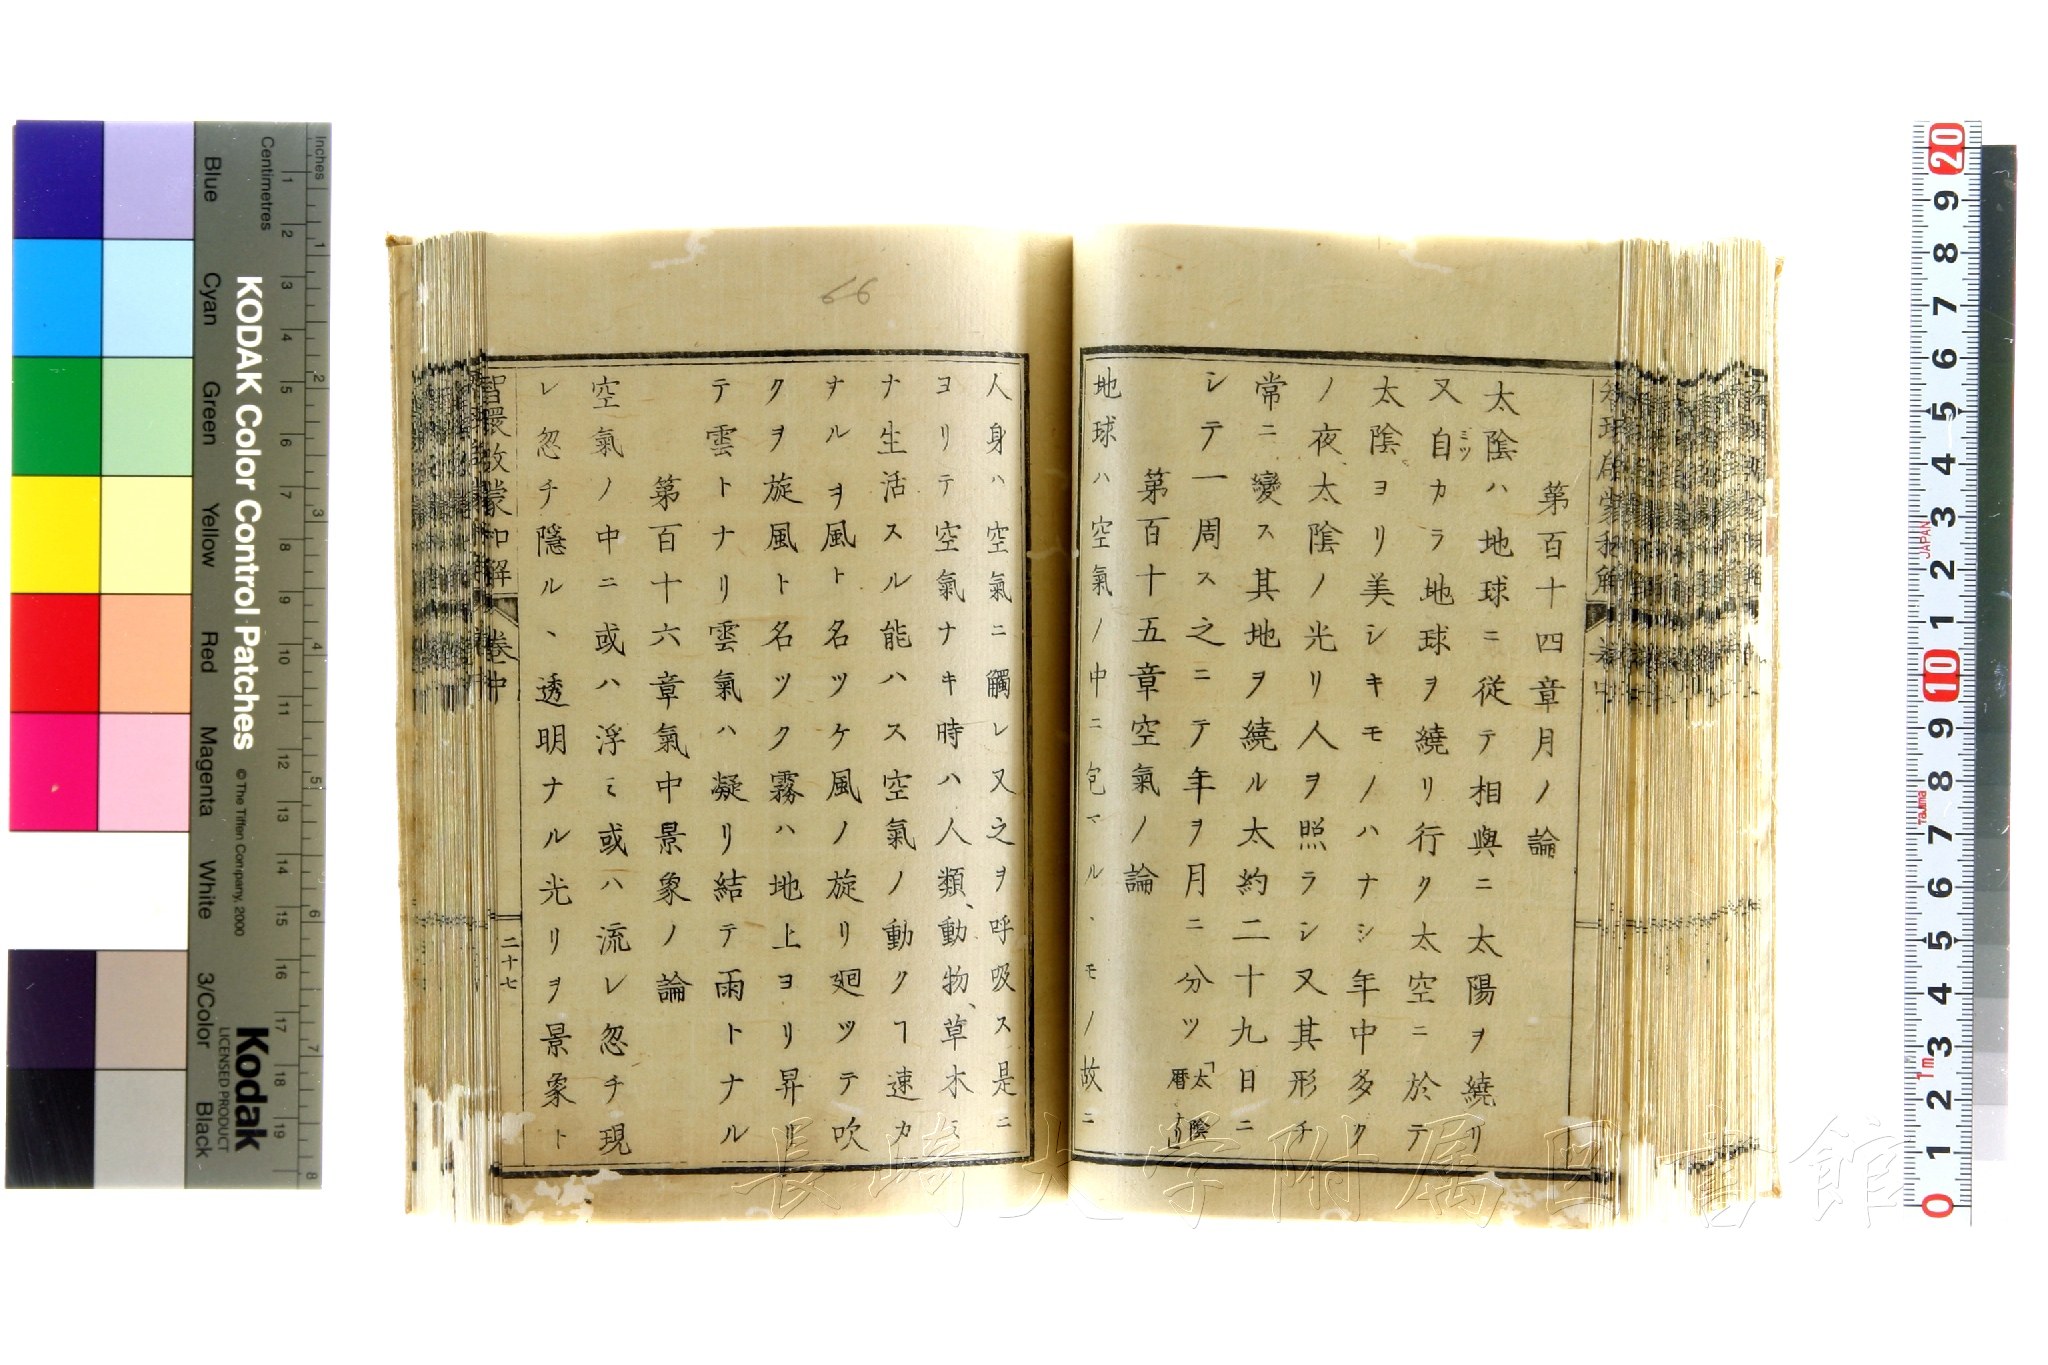 第百十四章月ノ論
太陰ハ地球ニ従テ相與ニ太陽ヲ繞リ
又自カラ地球ヲ繞リ行ク太空ニ於テ
太陰ヨリ美シキモノハナシ年中多ク
ノ夜太陰ノ光リ人ヲ照ラシ又其形チ
常ニ變ス其地ヲ繞ルハ太約二十九日ニ
シテ一周ス之ニテ年ヲ月ニ分ツ「太陰暦ナリ
第百十五章空氣ノ論
地球ハ空氣ノ中ニ包マルヽモノ故ニ
人身ハ空氣ニ觸レ又之ヲ呼吸ス是ニ
ヨリテ空氣ナキ時ハ人類、動物、草木ミ
ナ生活スル能ハス空氣ノ動クヿ速カ
ナルヲ風ト名ツケ風ノ旋リ廻ツテ吹
クヲ旋風ト名ツク霧ハ地上ヨリ昇リ
テ雲トナリ雲氣ハ凝リ結テ雨トナル
第百十六章氣中景象ノ論
空氣ノ中ニ或ハ浮ミ或ハ流レ忽チ現
レ忽チ隱ルヽ透明ナル光リヲ景象ト
智環啟蒙和解 卷中 二十七
66
長崎大学附属図書館
KODAK Color Control Patches
© The Tiffen Company, 2000
Kodak
LICENSED PRODUCT
Inches
Centimetres
Blue Cyan Green Yellow Red Magenta White 3/Color Black
1 2 3 4 5 6 7 8 9 10 11 12 13 14 15 16 17 18 19
1 2 3 4 5 6 7 8
20 9 8 7 6 5 4 3 2 1 10 9 8 7 6 5 4 3 2 1 0
JAPAN
Tajima
1m